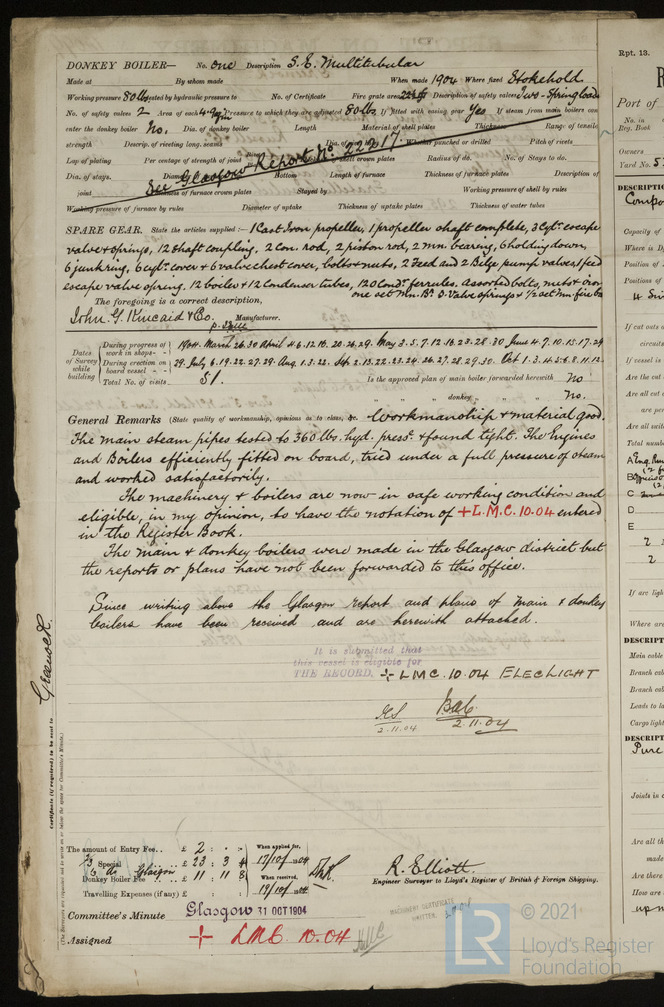 DONKEY BOILER— No. one Description S.E. Multitubular
Made at By whom made When made 1904 Where fixed Stokehold
Working pressure 80 lbs tested by hydraulic pressure to No. of Certificate Fire grate area Description of safety valves Two-Spring loaded
No. of safety valves 2 Area of each Pressure to which they are adjusted 80 lbs If fitted with easing gear Yes If steam from main boilers can
enter the donkey boiler No. Dia. of donkey boiler Length Material of shell plates Thickness Range of tensile
strength Descrip. of riveting long. seams Dia. of Whether punched or drilled Pitch of rivets
Lap of plating Per centage of strength of joint shell crown plates Radius of do. No. of Stays to do.
See Glasgow Report No. 22217
Dia. of stays. Diam Bottom Length of furnace Thickness of furnace plates Description of
joint Thickness of furnace crown plates Stayed by Working pressure of shell by rules
Working pressure of furnace by rules Diameter of uptake Thickness of uptake plates Thickness of water tubes
SPARE GEAR. State the articles supplied:— 1 Cast Iron propeller, 1 propeller shaft complete, 3 Cyl. escape
valve springs, 12 shaft coupling, 2 con. rod, 2 piston rod, 2 mn. bearing, 6 holding down,
6 junk ring, 6 cyl. cover & 6 valve chest cover, bolts & nuts, 2 Feed and 2 Bilge pump valves, 1 feed
escape valve spring, 12 boiler & 12 Condenser tubes, 120 Cond. ferrules. Assorted bolts, nuts & iron
one set Mn. Bs. 3 Valve springs & ½ set mn. fire bars
The foregoing is a correct description,
John G. Kincaid & Co. Manufacturer.
Dates of Survey while building
During progress of work in shops— 1904. March 26.30 April 4.6.12.18.20.26.29. May 3.5.7.12.16.23.28.30 June 4.7.10.15.17.24
During erection on board vessel— 29. July 6.19.22.27.29. Aug. 1.3.22. Sep. 2.13.22.23.24.26.27.28.29.30. Oct 1.3.4.5.6.8.11.12.
Total No. of visits 51. Is the approved plan of main boiler forwarded herewith No
" " " donkey " " " No.
General Remarks (State quality of workmanship, opinions as to class, &c. Workmanship & material good.
The main steam pipes tested to 360 lbs. hyd. press. & found tight. The Engines
and Boilers efficiently fitted on board, tried under a full pressure of steam
and worked satisfactorily.
The machinery & boilers are now in safe working condition and
eligible, in my opinion, to have the notation of +L.M.C. 10.04 entered
in the Register Book.
The main & donkey boilers were made in the Glasgow district but
the reports or plans have not been forwarded to this office.
Since writing above the Glasgow report and plans of main & donkey
boilers have been received and are herewith attached.
It is submitted that
this vessel is eligible for
THE RECORD. + LMC. 10.04 ELEC LIGHT
2.11.04
2.11.04
Greenock.
Certificate (if required) to be sent to
(The Surveyors are requested not to write on or below the space for Committee's Minute.)
The amount of Entry Fee.. £ 2 : " : " When applied for,
2/3 Special £ 23 : 3 : 4 17/10/1904
Glasgow
Donkey Boiler Fee £ 11 : 11 : 8 When received,
Travelling Expenses (if any) £ : : 19/10/1904
R. Elliott.
Engineer Surveyor to Lloyd's Register of British & Foreign Shipping.
Committee's Minute Glasgow 31 OCT 1904
MACHINERY CERTIFICATE
WRITTEN.
Assigned + LMC. 10.04
© 2021
LR Lloyd's Register
Foundation
Rpt. 13.
Port of
No. in
Reg. Book
Owners
Yard No.
Capacity of
Where is
Position of
Positions of
If cut outs
circuits
If vessel is
Are the cut
Are all cut
are per
Total numbe
A
B
C
D
E
2
2
If are ligh
Where are
DESCRIPT
Main cable
Branch cab
Branch cab
Leads to la
Cargo light
DESCRIPT
Pure
Joints in
Are all th
made
Are there
How are